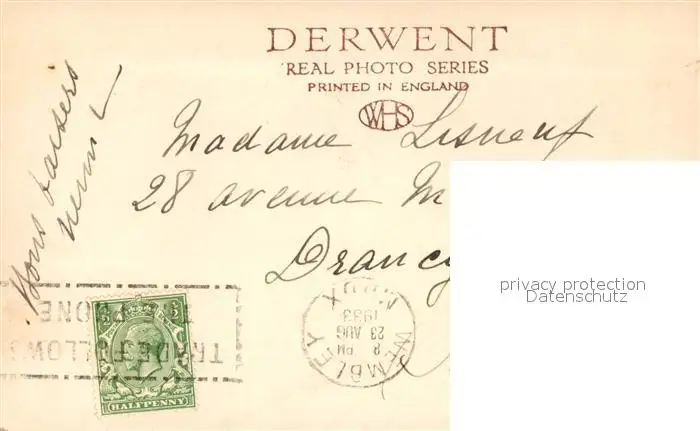 DERWENT
REAL PHOTO SERIES
PRINTED IN ENGLAND
WHS
Madame Lisneuf
28 avenue M
Drancy
Bons baisers
HALFPENNY
WEMBLEY
8 PM
23 AUG
1933
TRADE FOLLOWS
THE PHONE
privacy protection
Datenschutz